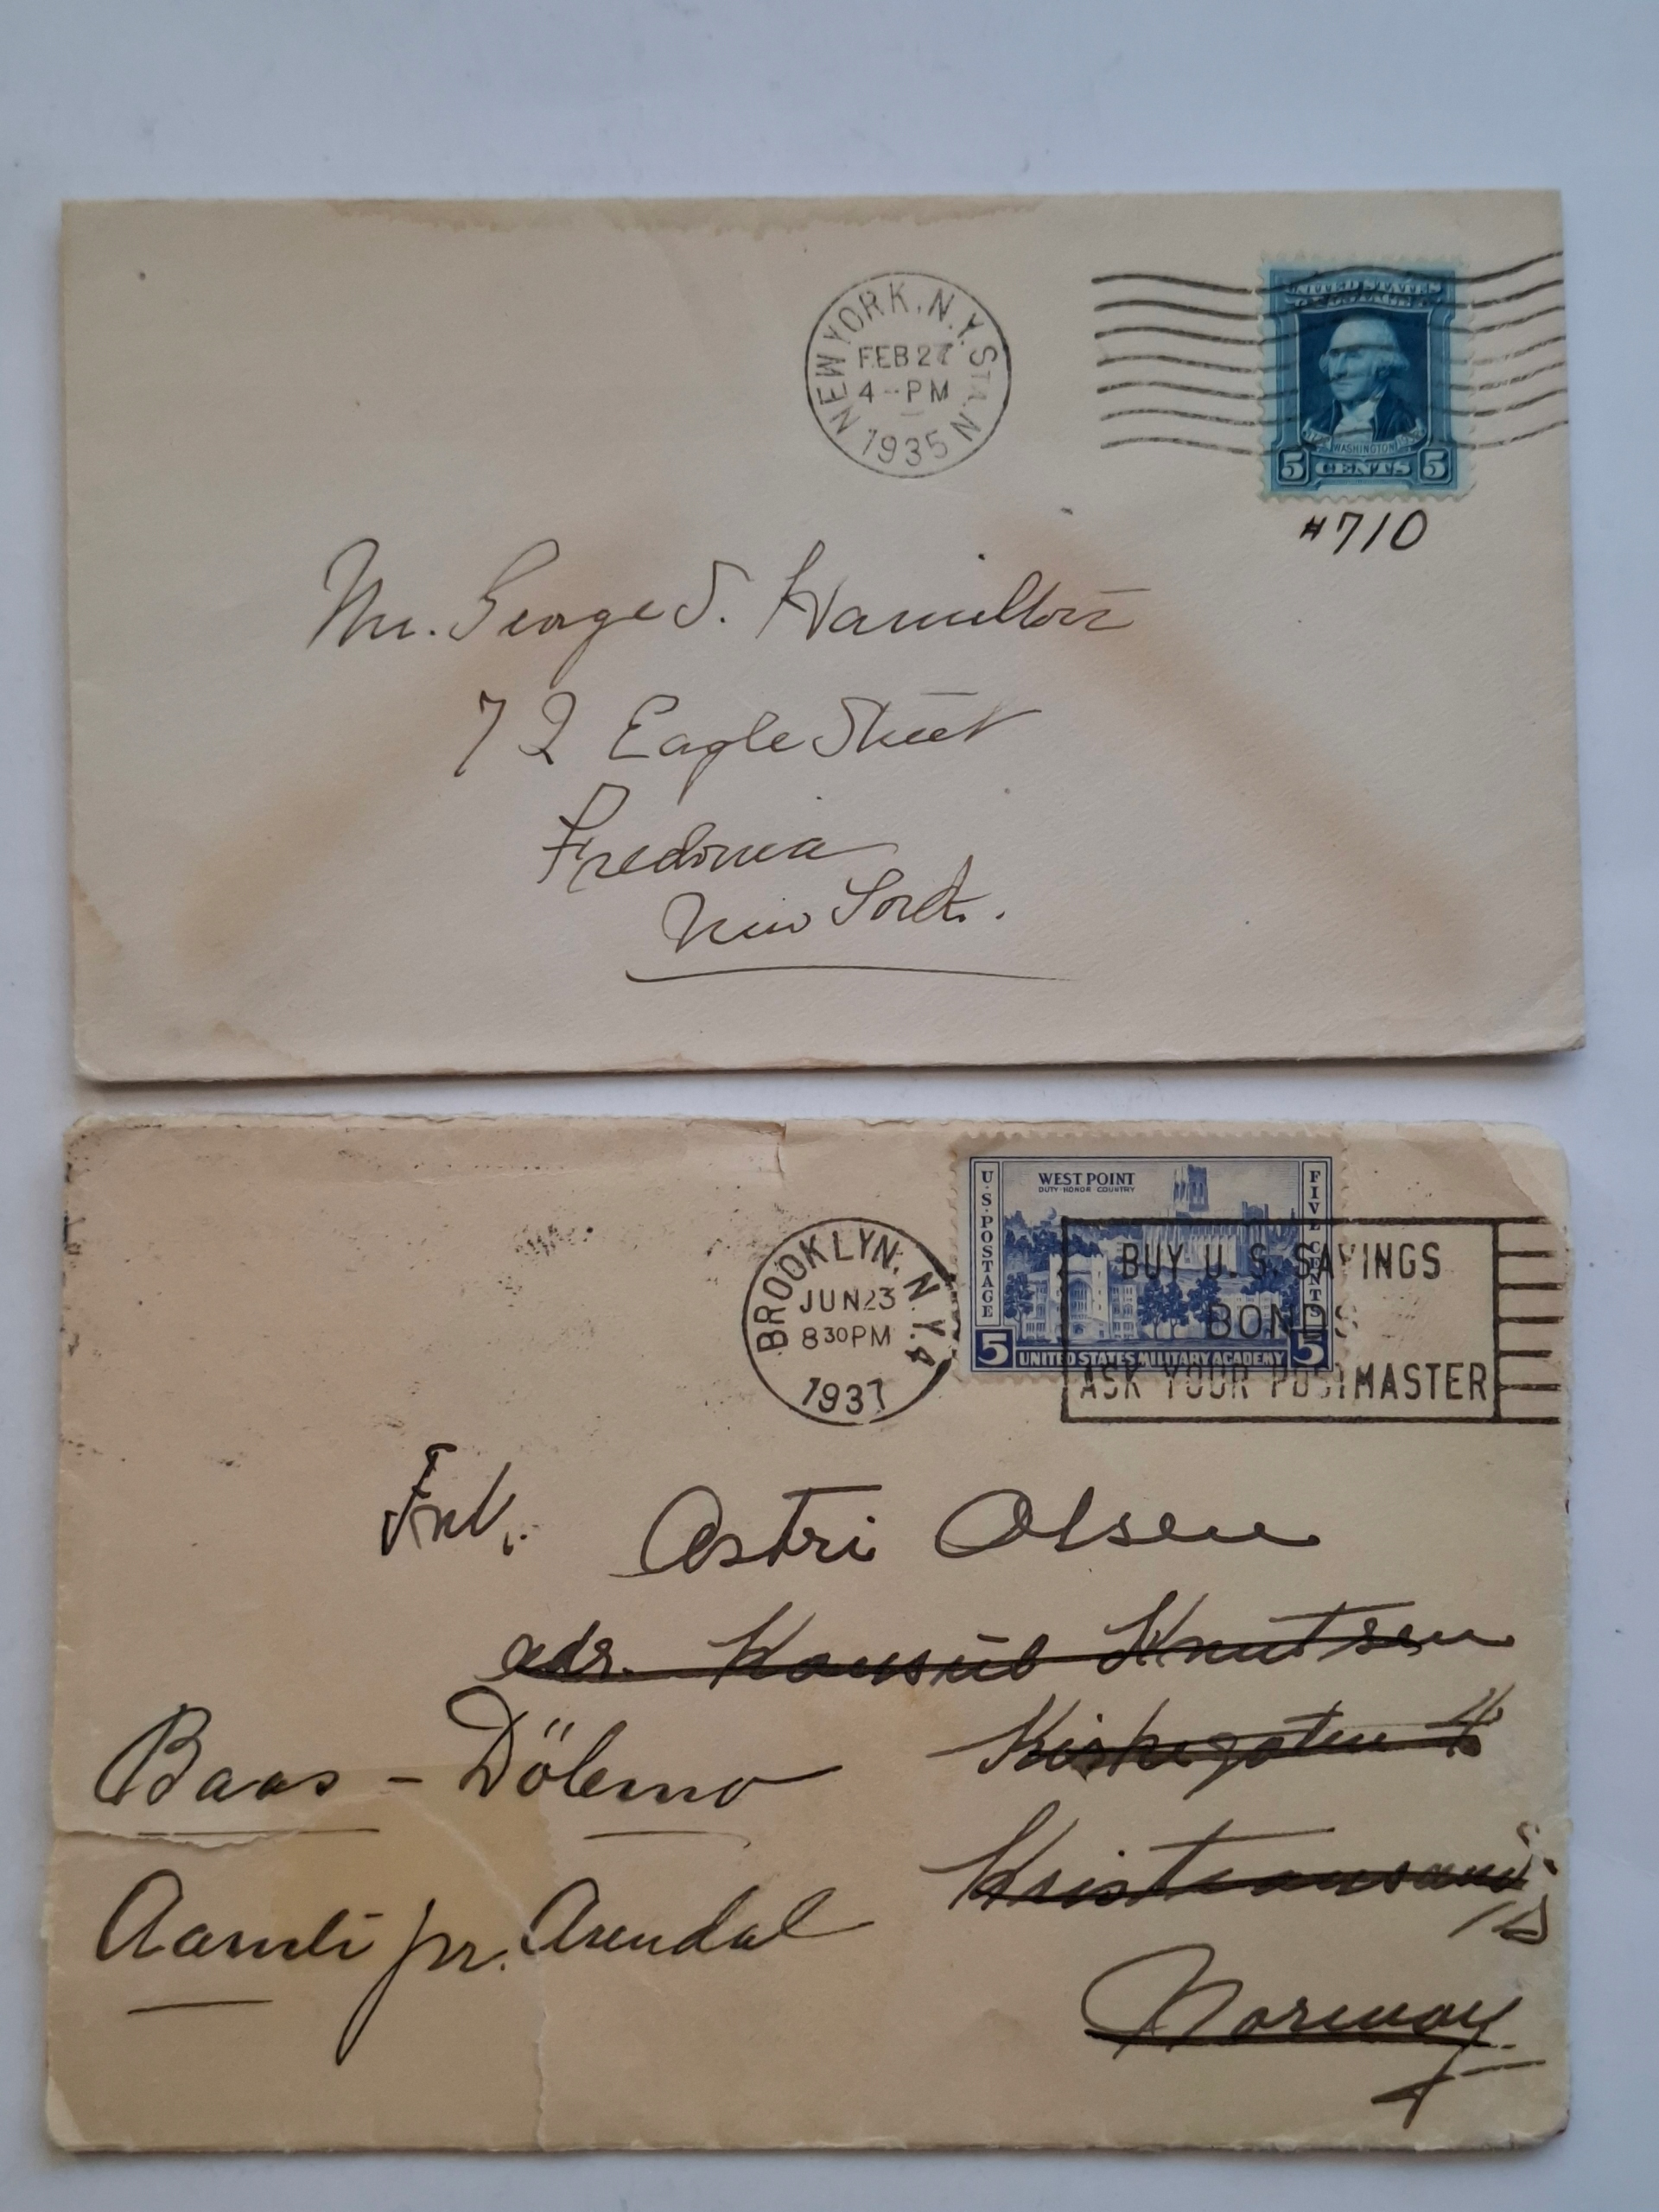 NEW YORK, N.Y. STA. N
FEB 27
4-PM
1935
UNITED STATES
POSTAGE
WASHINGTON
5 CENTS 5
#710
Mr. George S. Hamilton
72 Eagle Street
Fredonia
New York.
BROOKLYN, N.Y. 4
JUN 23
8 30 PM
1937
U.S. POSTAGE
WEST POINT
DUTY·HONOR COUNTRY
FIVE CENTS
5 UNITED STATES MILITARY ACADEMY 5
BUY U.S. SAVINGS
BONDS
ASK YOUR POSTMASTER
Frk. Astri Olsen
adr. Konsul Knutsen
Baas - Dölemo
Kirkegaten 4
Kristiansand S.
Aamli pr. Arendal
Norway